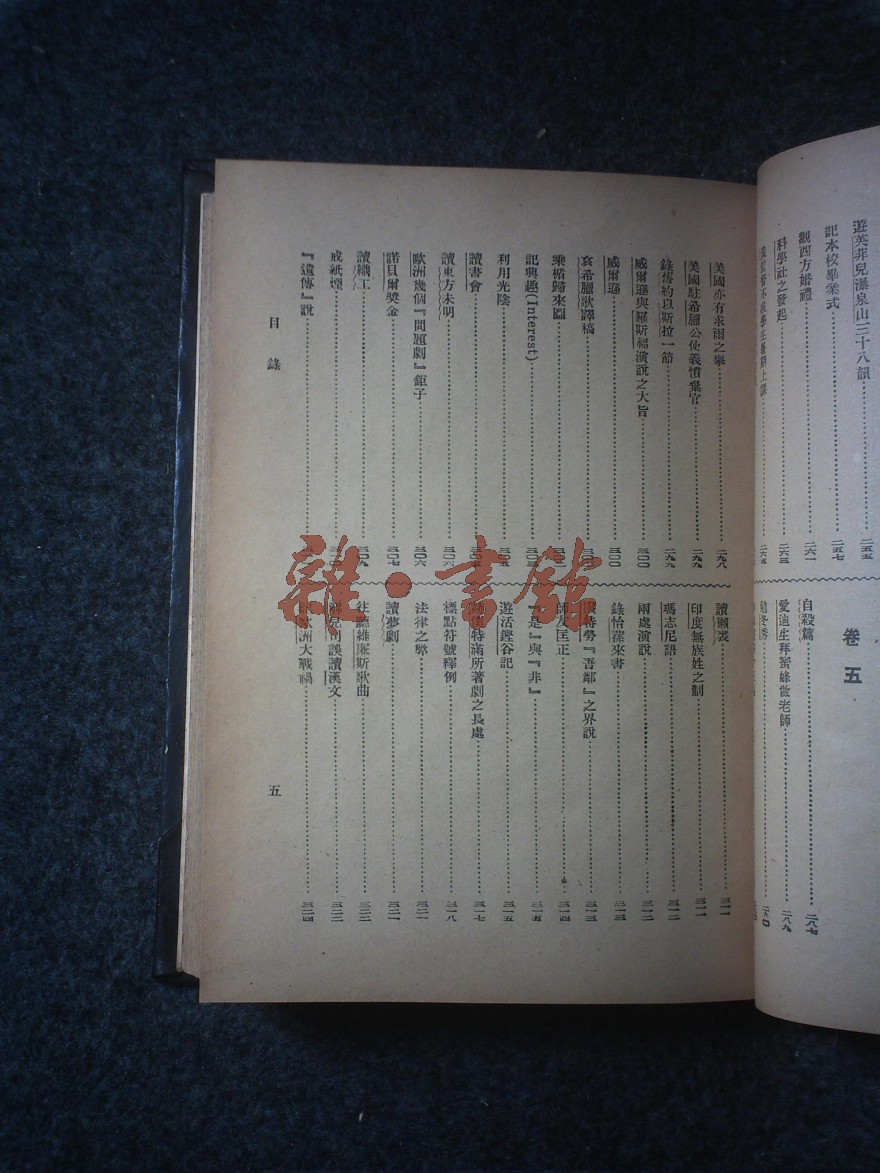 遊英菲兒瀑泉山三十八韻……二五五
記本校畢業式……二五七
觀西方婚禮……二六一
科學社之發起……二六三
卷五
自殺篇……二八七
愛迪生拜蜜蜂做老師……二八九
美國亦有求雨之舉……二九八
美國駐希臘公使義憤棄官……二九九
錄舊約以斯拉一節……二九九
威爾遜與羅斯福演說之大旨……三〇〇
威爾遜……三〇〇
哀希臘歌譯稿
乘楯歸來圖
記興趣(Interest)
利用光陰
讀書會
讀東方未明……三〇六
歐洲幾個『問題劇』鉅子……三〇六
諾貝爾獎金……三〇七
讀織工
戒紙煙
『遺傳』說
讀獺裘……三一一
印度無族姓之制……三一一
瑪志尼語……三一二
兩處演說……三一二
錄怡蓀來書……三一三
『吾鄰』之界說……三一三
師友匡正……三一四
『是』與『非』……三一五
遊活鏗谷記……三一五
特滿所著劇之長處……三一七
標點符號釋例……三一八
法律之弊……三二一
讀夢劇……三二一
往聽維廉斯歌曲……三二二
誤讀漢文……三二三
歐洲大戰禍……三二四
目錄
五
雜·書館